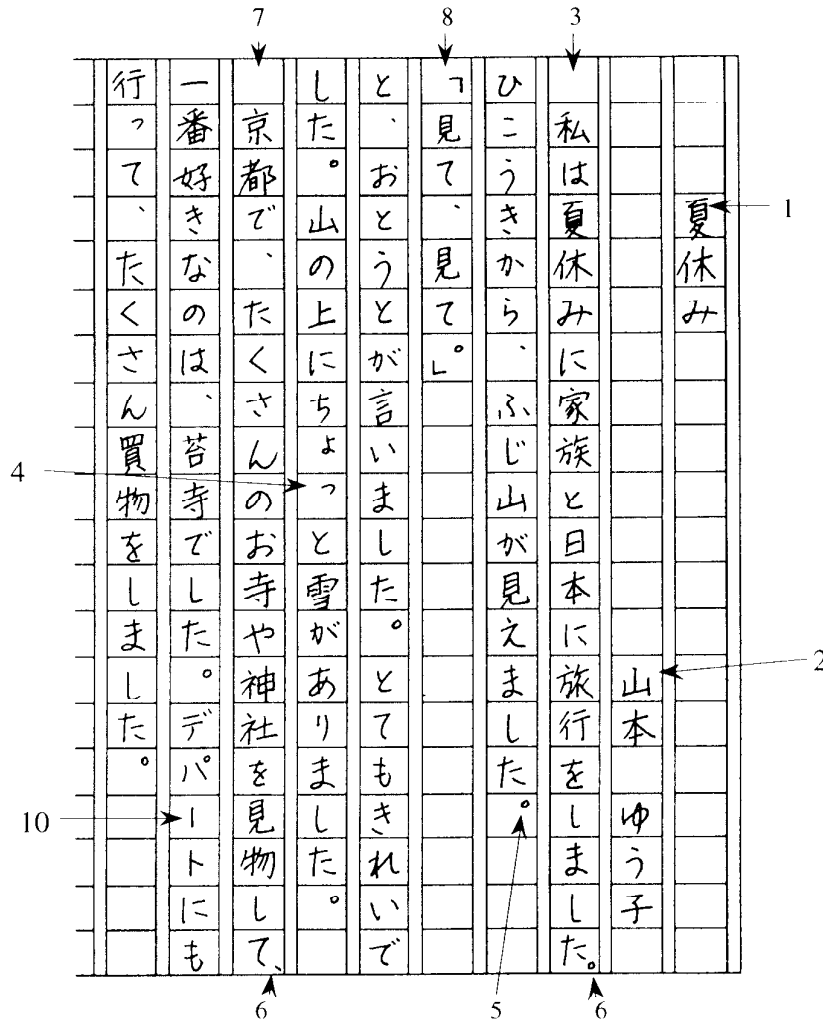 夏休み
山本 ゆう子
私は夏休みに家族と日本に旅行をしました。
ひこうきから、ふじ山が見えました。
「見て、見て」。
と、おとうとが言いました。とてもきれいで
した。山の上にちょっと雪がありました。
京都で、たくさんのお寺や神社を見物して、
一番好きなのは、苔寺でした。デパートにも
行って、たくさん買物をしました。
1
2
3
4
5
6
6
7
8
10